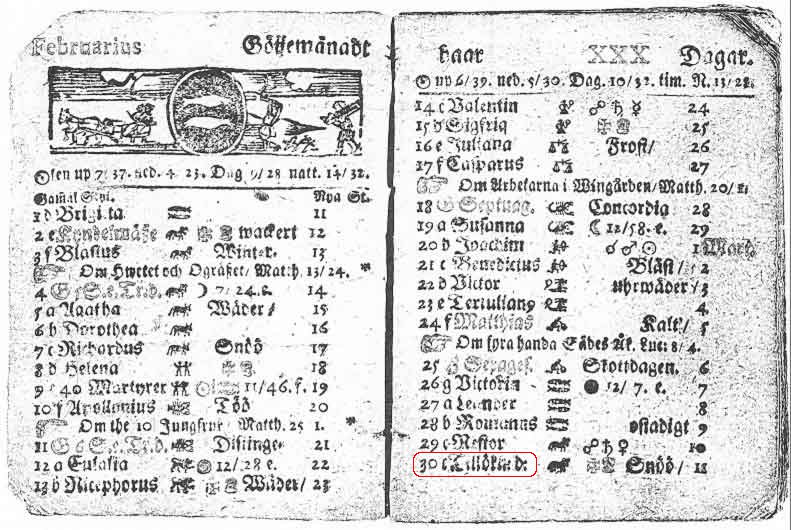 Februarius Göijemånadt
Solen up 7/37. ned. 4 23. Dag 9/28 natt. 14/32.
Gamal Styl. Nya St.
1 d Brigitta 11
2 e Kyndelmässe wackert 12
3 f Blasius Winter. 13
Om Hwetet och Ogräset/ Matth. 13/24.
4 G 7/24. 14
5 a Agatha Wäder/ 15
6 b Dorothea 16
7 c Richardus Snöö 17
8 d Helena 18
9 e 40 Martyrer 11/46. f. 19
10 f Apollonius Töö 20
Om the 10 Jungfrur Matth. 25 1.
11 G 21
12 a Eulalia 12/28 e. 22
13 b Nicephorus Wäder/ 23
haar XXX Dagar.
up 6/39. ned. 5/30. Dag. 10/32. tim. N. 13/28.
14 c Valentin ☍ ♄ ☿ 24
15 d Sigfrid 25
16 e Juliana Frost/ 26
17 f Casparus 27
Om Arbetarna i Wingården/ Matth. 20/1.
18 G Septuag. Concordia 28
19 a Susanna ☾ 12/58. e. 29
20 b Joachim ☌ ♂ ☉ 1 Mart.
21 c Benedictus Bläst/ 2
22 d Victor uhrwäder/ 3
23 e Tertulian9 4
24 f Matthias Kalt/ 5
Om fyra handa Sädes Åk. Luc: 8/4.
25 G Sexages. Skottdagen. 6
26 g Victorin ● 12/7. e. 7
27 a Leander 8
28 b Romanus ostadigt 9
29 c Nestor ☍ ♄ ♀ 10
30 Snöö/ 11